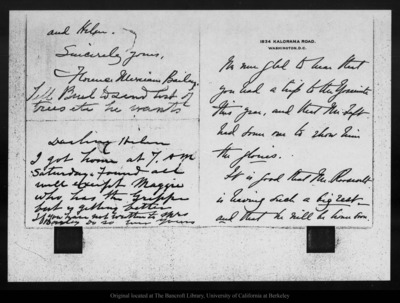 and Helen.
Sincerely yours,
Florence Merriam Bailey.
Tell Buel to send list of
trees etc he wants
Darling Helen
I got home at 7. A.M
Saturday. Found all
well except Maggie
who has the grippe
but is getting better
If you have not written to Mrs
do so
yours
1834 KALORAMA ROAD.
WASHINGTON, D.C.
glad to hear that
you had a trip to the Yosemite
this year, and that Mr. Taft
had some one to show him
the glories.
It is good that Mr. Roosevelt
is having such a big rest
and that he will be home soon.
Original located at The Bancroft Library, University of California at Berkeley